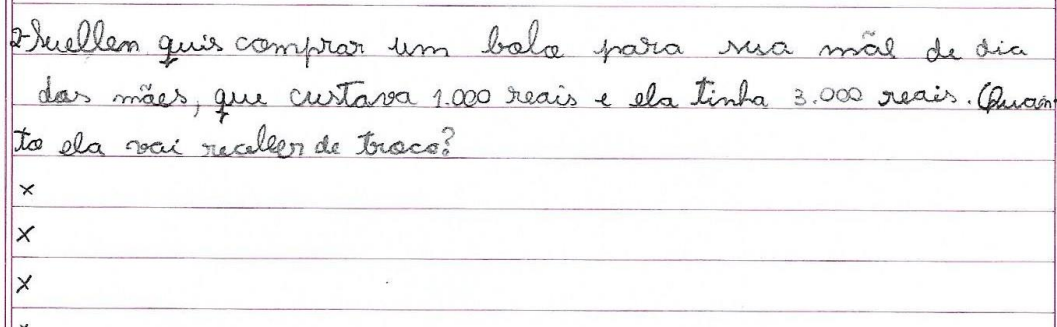 2-Suellen quis comprar um bolo para sua mãe de dia
das mães, que custava 1.000 reais e ela tinha 3.000 reais. Quan
to ela vai receber de troco?
x
x
x
x